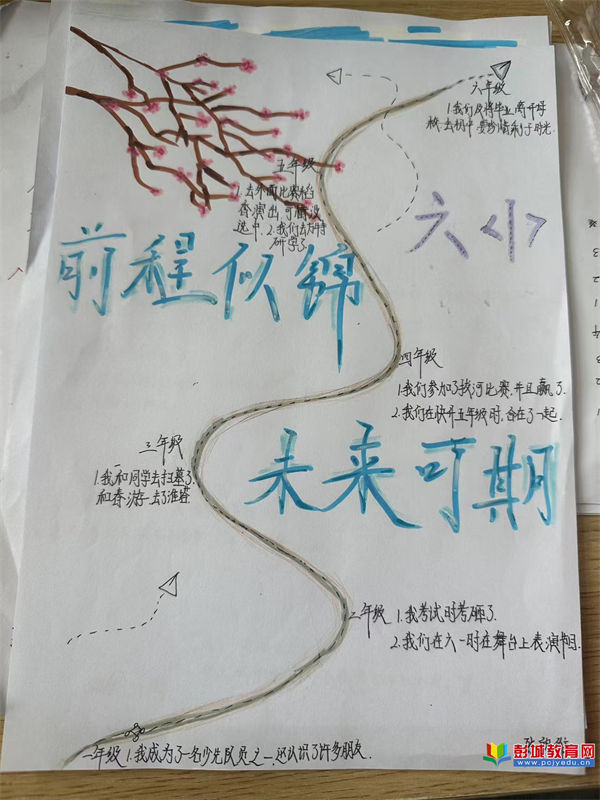 六年级
1.我们及将毕业,离开母
校,去初中,要珍惜剩于时光.
五年级
1.去外面比赛稻
香演出,可惜没
选中.2.我们去
研学了.
六小
前程似锦
四年级
1.我们参加了拔河比赛,并且赢了.
2.我们在快升五年级时,合在了一起.
三年级
1.我和同学去扫墓了.
和春游去了淮
未来可期
二年级 1.我考试时考砸了.
2.我们在六一时在舞台上表演节目.
一年级 1.我成为了一名少先队员之一,还认识了许多朋友.
彭城教育网
www.pcjyedu.cn